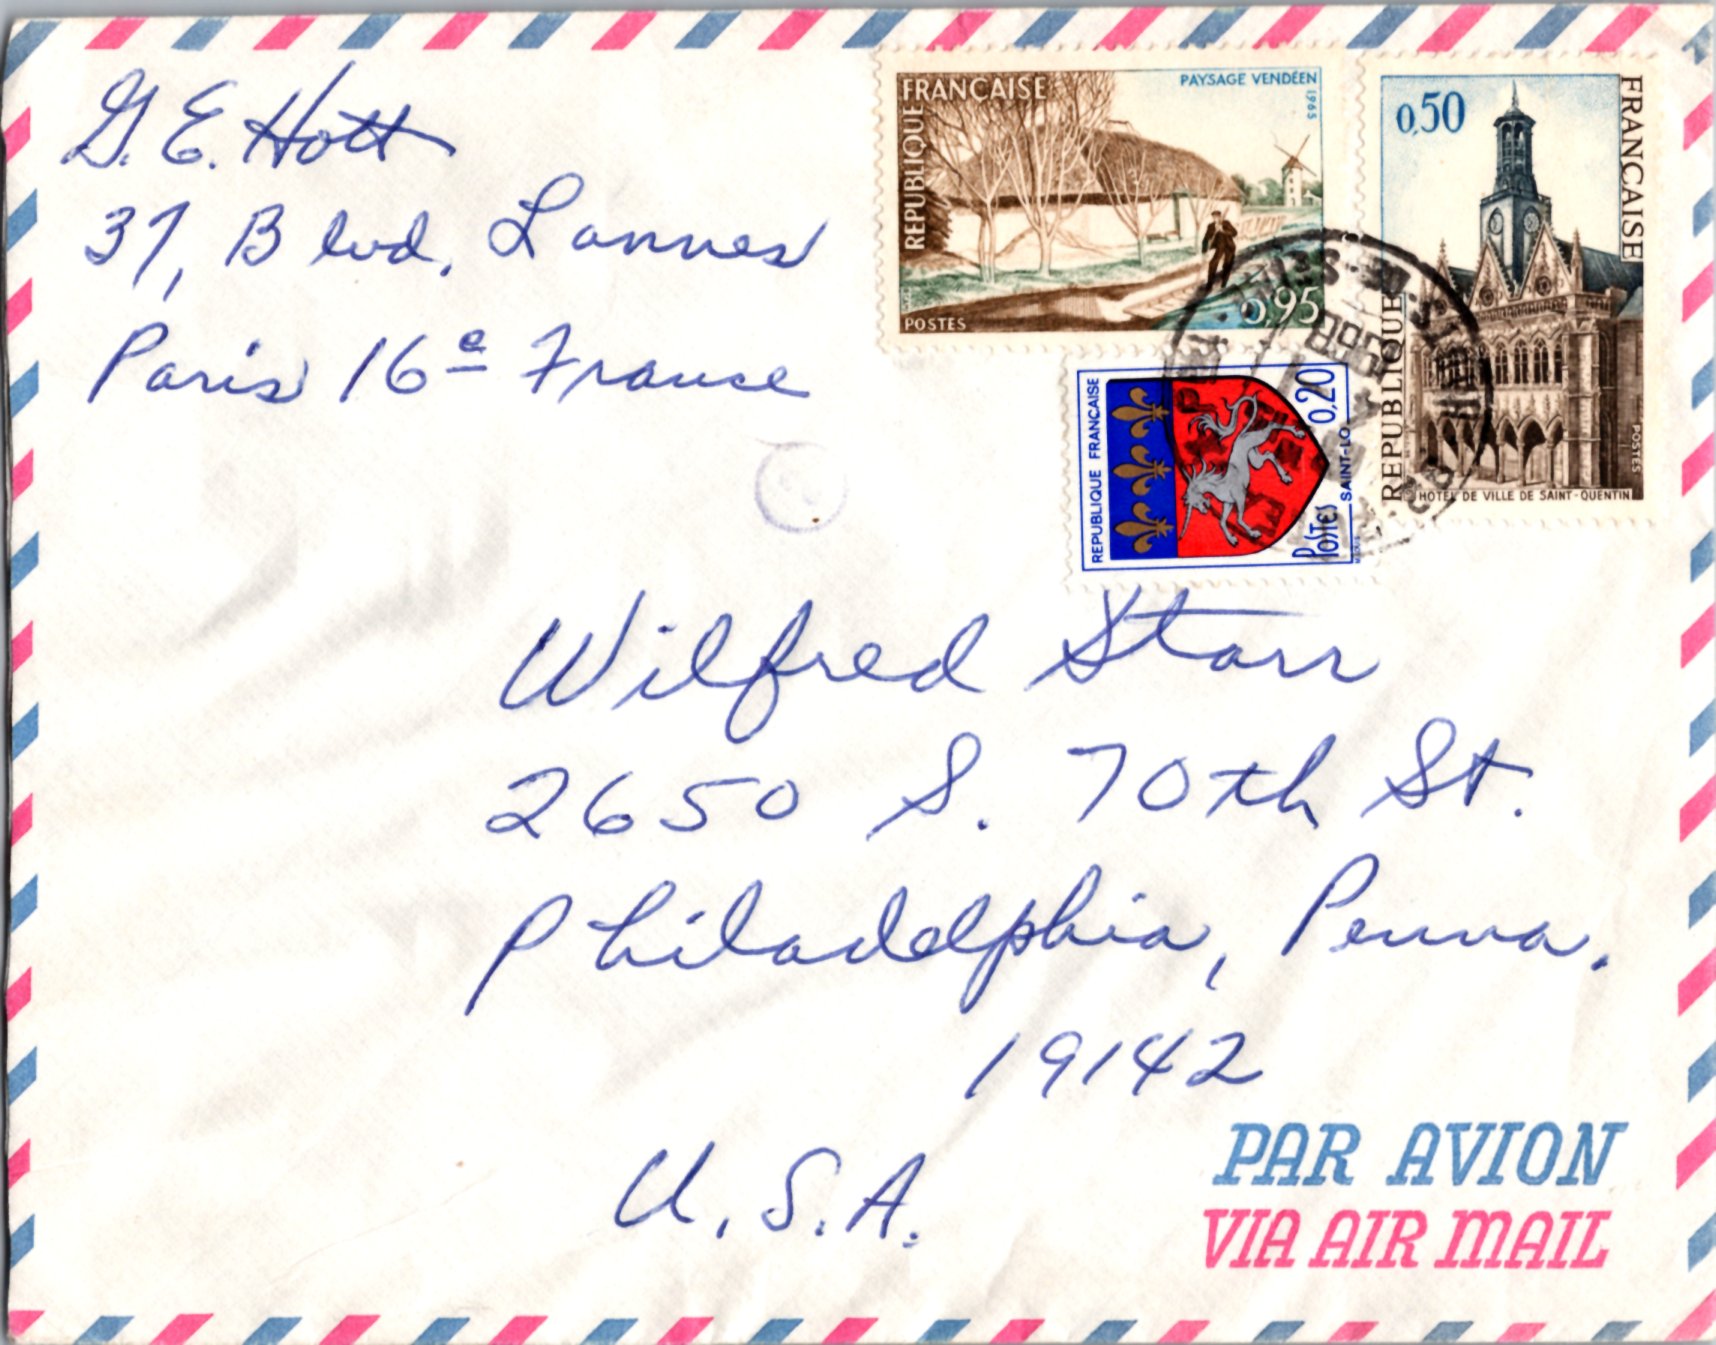 G. E. Hott
37, Blvd. Lannes
Paris 16e France
RÉPUBLIQUE FRANÇAISE
PAYSAGE VENDÉEN
1965
POSTES
0,95
0,50
RÉPUBLIQUE FRANÇAISE
POSTES
HOTEL DE VILLE DE SAINT-QUENTIN
REPUBLIQUE FRANÇAISE
0,20
POSTES SAINT-LO
Wilfred Starr
2650 S. 70th St.
Philadelphia, Penna.
19142
U.S.A.
PAR AVION
VIA AIR MAIL